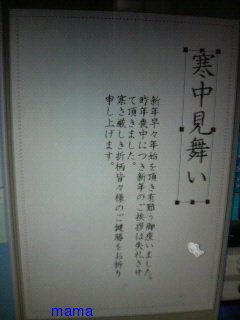 寒中見舞い
新年早々年始を頂き有難う御座いました。
昨年喪中につき新年のご挨拶は失礼させ
て頂きました。
寒さ厳しき折柄皆々様のご健勝をお祈り
申し上げます。
mama